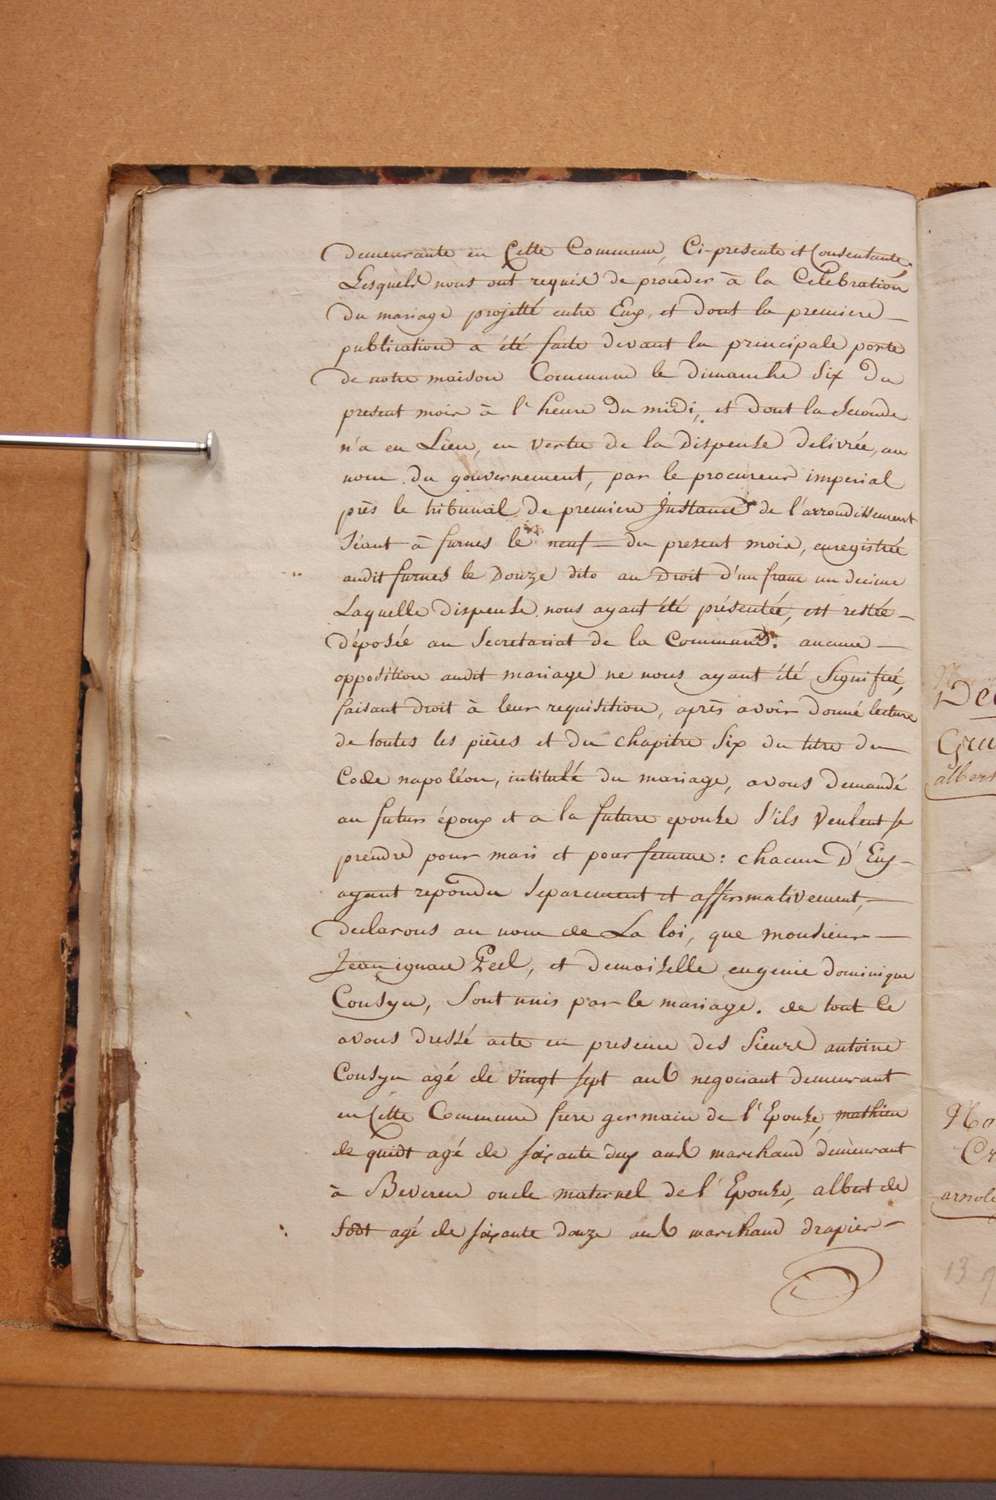 demeurante en Cette Commune, Ci-presente et Consentante.
Lesquels nous ont requis de proceder à la Célébration
du mariage projetté entre Eux, et dont la premiere
publication a été faite devant la principale porte
de notre maison Commune le dimanche Six du
present mois à l'heure du midi, et dont la Seconde
n'a eu Lieu, en vertu de la Dispense delivrée, au
nom du gouvernement, par le procureur imperial
près le tribunal de premiere Justance de l'arrondissement
Séant à furnes le neuf du present mois, enregistrée
audit furnes le Douze dito au Droit d'un franc un decime
Laquelle dispense nous ayant été présentée, est restée
déposée au Secretariat de la Commune. aucune
opposition audit mariage ne nous ayant été Signifiée,
faisant Droit à leur requisition, après avoir donné lecture
de toutes les pièces et du chapitre Six du titre du
Code napoléon, intitulé du mariage, avons Demandé
au futur époux et a la future epouse S'ils Veulent se
prendre pour mari et pour femme: chacun D'Eux
ayant repondu Separement et affirmativement,
declarons au nom de La loi, que monsieur
Jean ignace Peel, et demoiselle eugenie dominique
Cousyn, Sont unis par le mariage. de tout Ce
avons dressé acte en presence des Sieurs antoine
Cousyn agé de vingt sept ans negociant demeurant
en Cette Commune frere germain de l'Epouse, mathieu
de quidt agé de soixante dux ans marchand demeurant
à Beveren oncle maternel de l'Epouse, albert de
Sodt agé de soixante douze ans marchand drapier
Cru
albert
No
arnold
13